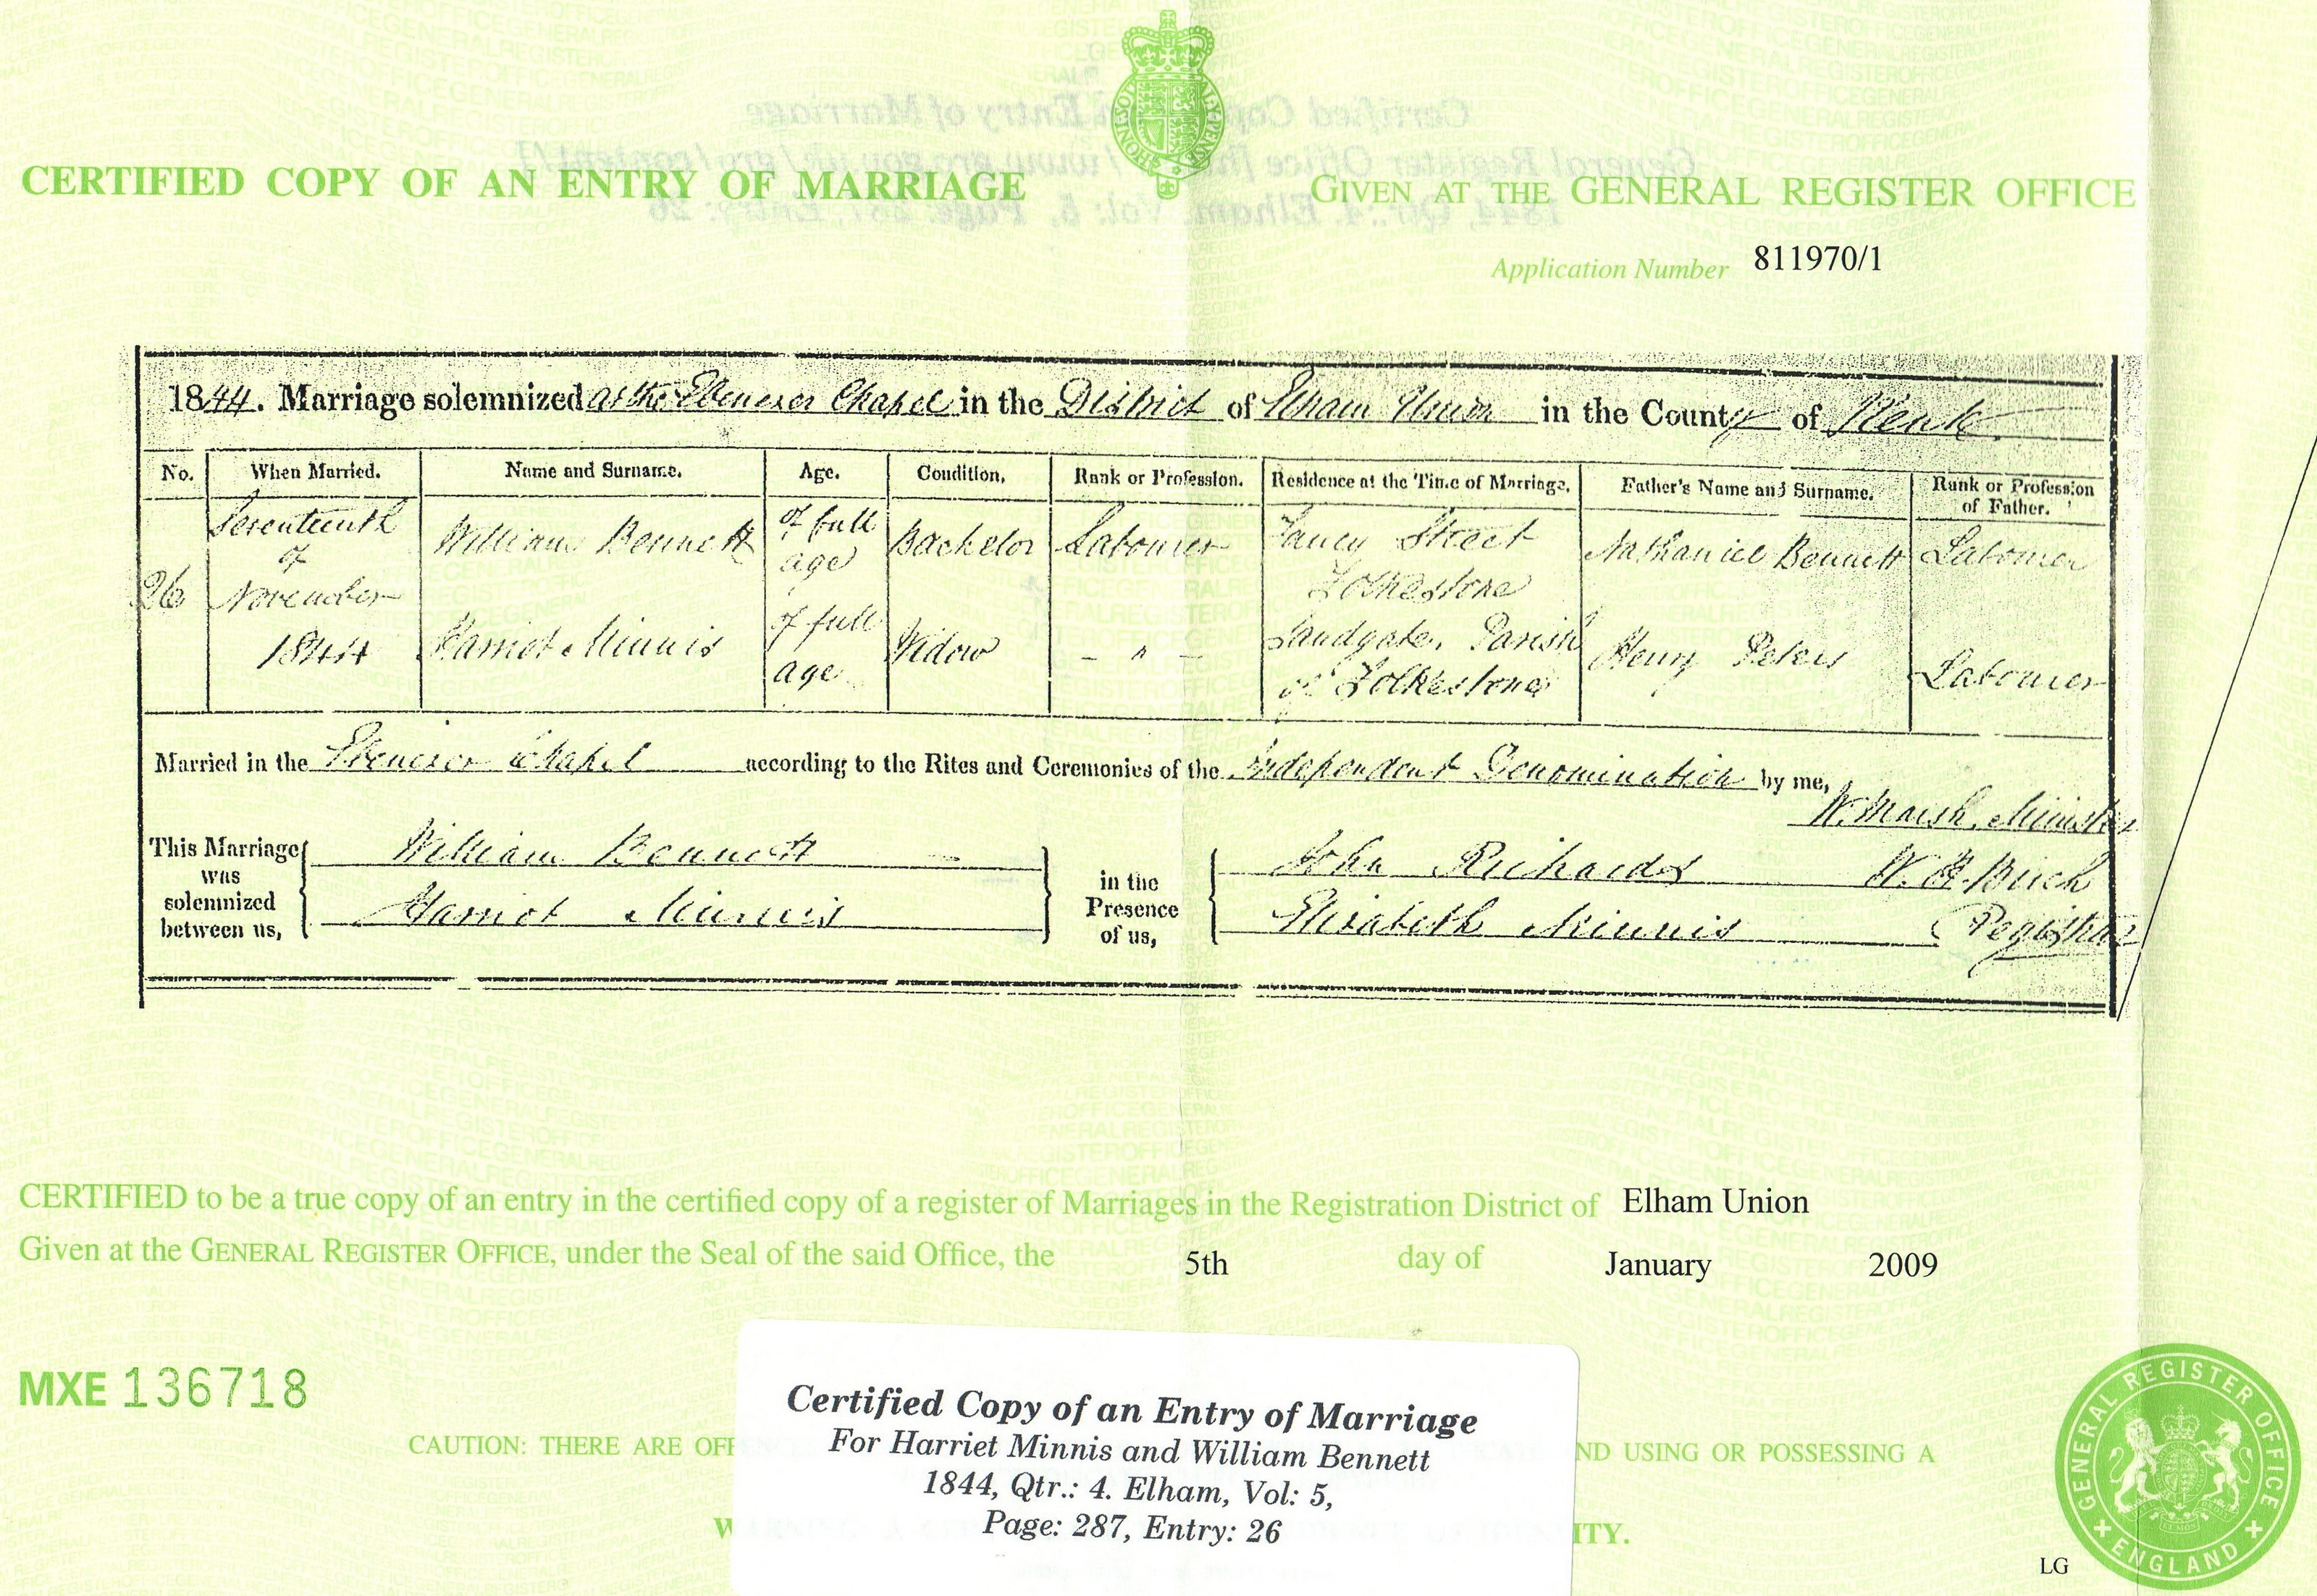 CERTIFIED COPY OF AN ENTRY OF MARRIAGE
GIVEN AT THE GENERAL REGISTER OFFICE
Application Number 811970/1
1844. Marriage solemnized at the Ebenezer Chapel in the District of Elham Union in the County of Kent
No. When Married. Name and Surname. Age. Condition. Rank or Profession. Residence at the Time of Marriage. Father's Name and Surname. Rank or Profession of Father.
26 Seventeenth of November 1844
William Bennett of full age Bachelor Labourer Fancy Street Folkestone Nathaniel Bennett Labourer
Harriot Minnis of full age Widow - " - Sandgate, Parish of Folkestone Henry Peters Labourer
Married in the Ebenezer Chapel according to the Rites and Ceremonies of the Independent Denomination by me,
W. Marsh, Minister
This Marriage was solemnized between us,
William Bennett
Harriot Minnis
in the Presence of us,
John Richards
Elizabeth Minnis
W. Birch
Registrar
CERTIFIED to be a true copy of an entry in the certified copy of a register of Marriages in the Registration District of Elham Union
Given at the GENERAL REGISTER OFFICE, under the Seal of the said Office, the 5th day of January 2009
MXE 136718
CAUTION: THERE ARE OFF
ND USING OR POSSESSING A
ITY.
Certified Copy of an Entry of Marriage
For Harriet Minnis and William Bennett
1844, Qtr.: 4. Elham, Vol: 5,
Page: 287, Entry: 26
GENERAL REGISTER OFFICE
ENGLAND
LG